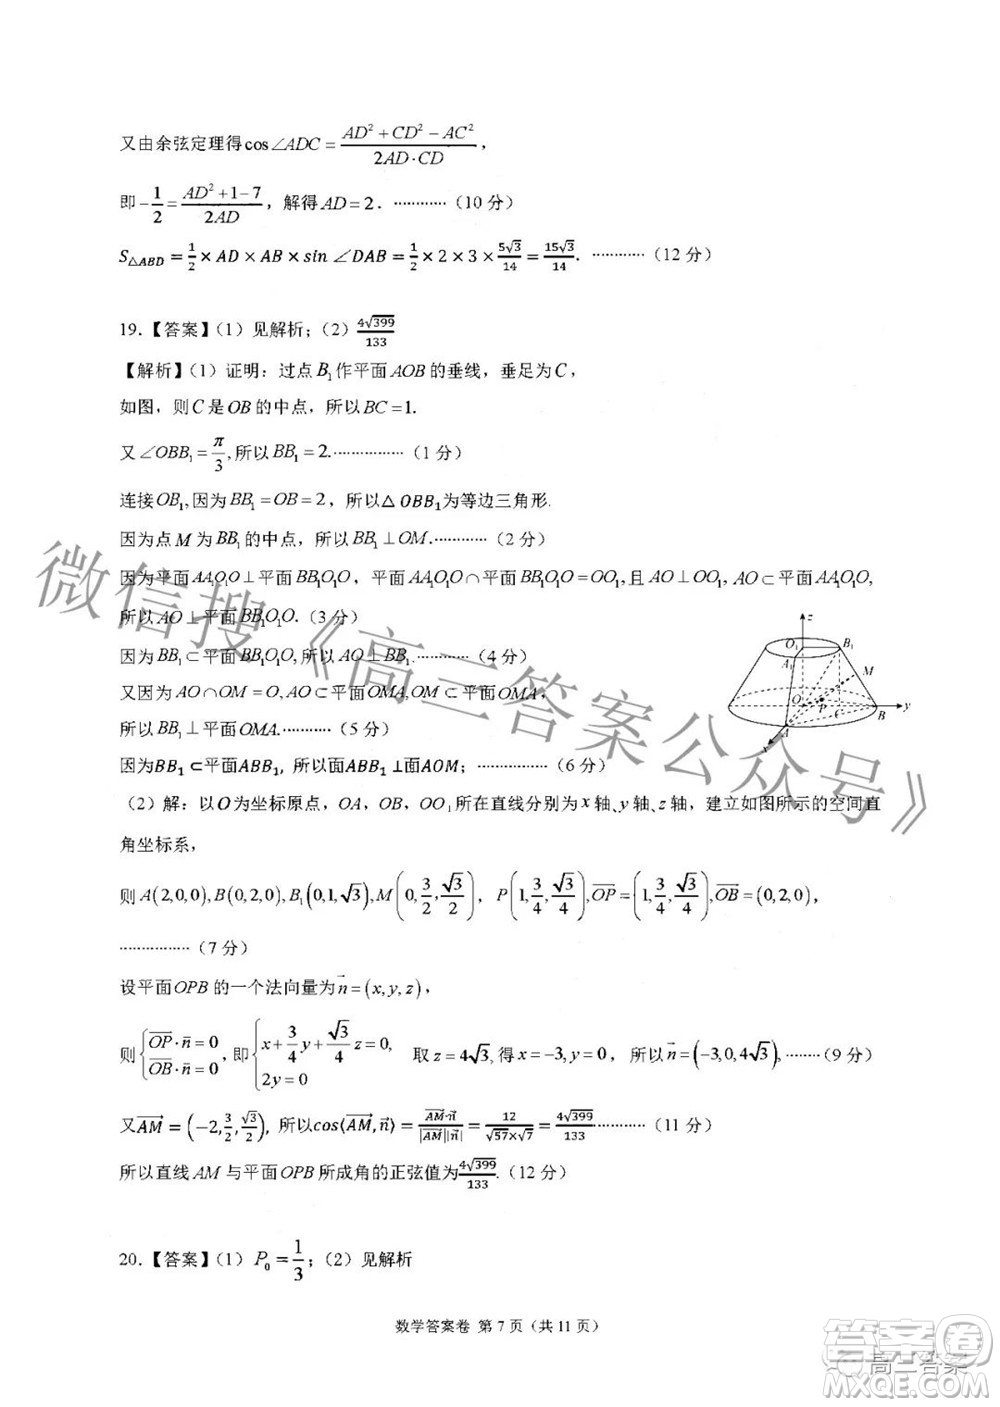 又由余弦定理得 cos∠ADC = (AD² + CD² − AC²)/(2AD·CD)，
即 −1/2 = (AD² + 1 − 7)/(2AD)，解得 AD = 2．…………（10 分）
S△ABD = 1/2 × AD × AB × sin ∠DAB = 1/2 × 2 × 3 × 5√3/14 = 15√3/14．…………（12 分）
19．【答案】（1）见解析；（2）4√399/133
【解析】（1）证明：过点 B₁ 作平面 AOB 的垂线，垂足为 C，
如图，则 C 是 OB 的中点，所以 BC = 1.
又∠OBB₁ = π/3，所以 BB₁ = 2.……………（1 分）
连接 OB₁,因为 BB₁ = OB = 2，所以△ OBB₁为等边三角形.
因为点 M 为 BB₁ 的中点，所以 BB₁ ⊥ OM.…………（2 分）
因为平面 AA₁O₁O ⊥ 平面 BB₁O₁O，平面 AA₁O₁O ∩ 平面 BB₁O₁O = OO₁,且 AO ⊥ OO₁, AO ⊂ 平面 AA₁O₁O,
所以 AO ⊥ 平面 BB₁O₁O.（3 分）
因为 BB₁ ⊂ 平面 BB₁O₁O, 所以 AO ⊥ BB₁.…………（4 分）
又因为 AO ∩ OM = O, AO ⊂ 平面 OMA, OM ⊂ 平面 OMA，
所以 BB₁ ⊥ 平面 OMA.…………（5 分）
因为BB₁ ⊂平面 ABB₁，所以面ABB₁ ⊥面AOM；……………（6 分）
z
O₁
B₁
A₁
M
O
P
C
B
y
A
x
（2）解：以 O 为坐标原点，OA，OB，OO₁ 所在直线分别为 x 轴、y 轴、z 轴，建立如图所示的空间直
角坐标系，
则 A(2,0,0), B(0,2,0), B₁(0,1,√3), M(0, 3/2, √3/2)，P(1, 3/4, √3/4), OP→ = (1, 3/4, √3/4), OB→ = (0,2,0)，
……………（7 分）
设平面 OPB 的一个法向量为 n→ = (x, y, z)，
则 {OP→·n→ = 0, OB→·n→ = 0，即 {x + 3/4 y + √3/4 z = 0, 2y = 0 取 z = 4√3, 得 x = −3, y = 0，所以 n→ = (−3,0,4√3),……（9 分）
又AM→ = (−2, 3/2, √3/2)，所以cos⟨AM→, n→⟩ = AM→·n→/|AM→||n→| = 12/(√57×√7) = 4√399/133…………（11 分）
所以直线 AM 与平面 OPB 所成角的正弦值为4√399/133.（12 分）
20．【答案】（1）P₀ = 1/3；（2）见解析
数学答案卷 第 7 页（共 11 页）
微信搜《高三答案公众号》
答案卷
高三答案
MXQE.COM